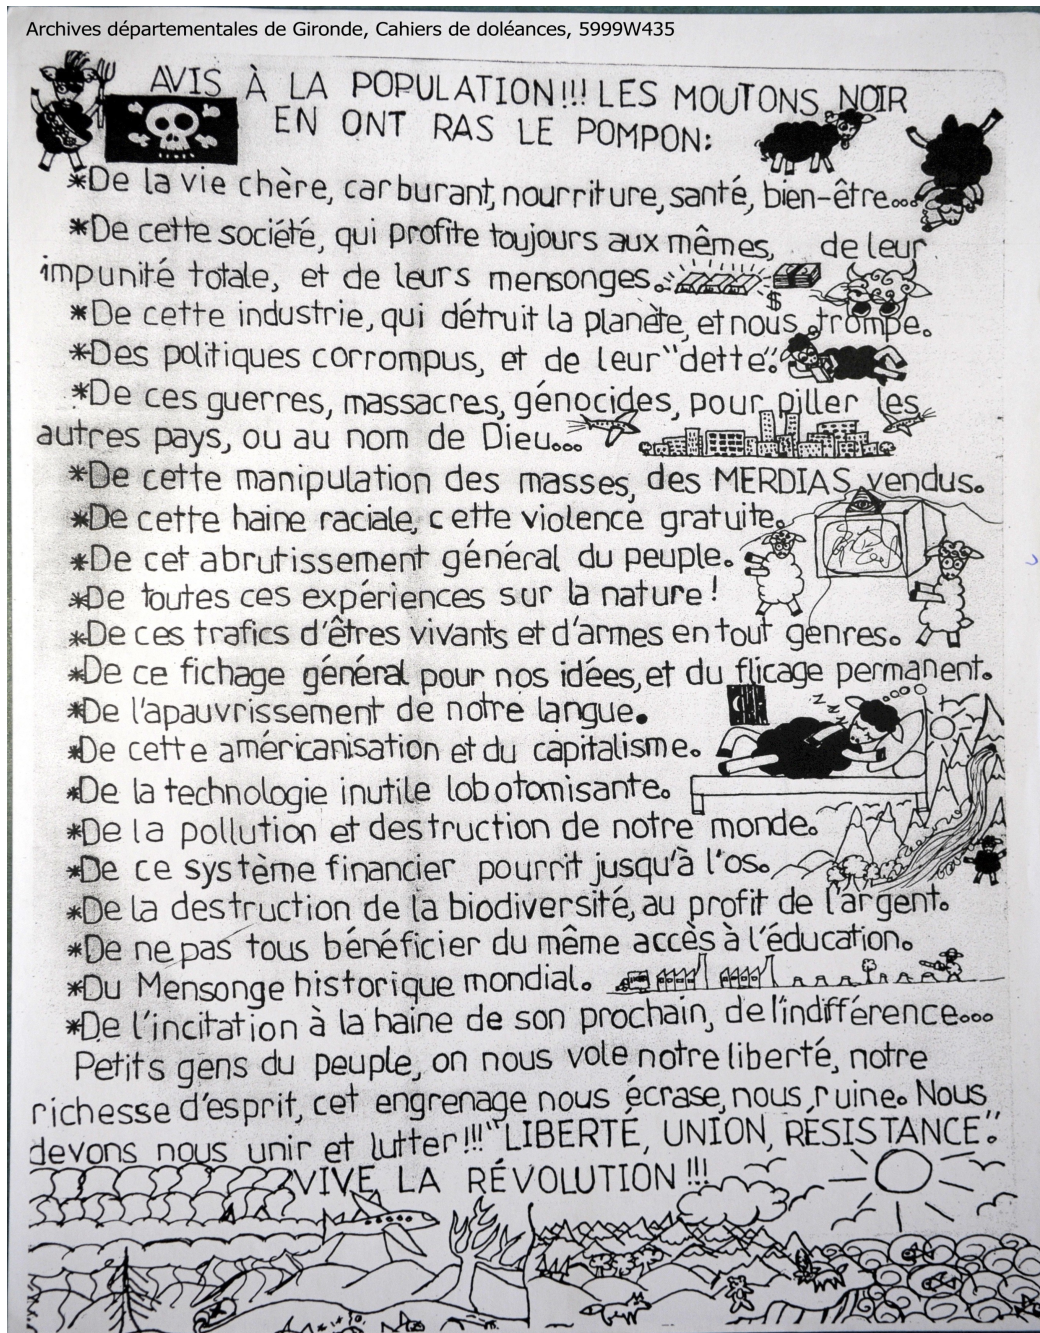 Archives départementales de Gironde, Cahiers de doléances, 5999W435
AVIS À LA POPULATION!!! LES MOUTONS NOIR
EN ONT RAS LE POMPON:
*De la vie chère, carburant, nourriture, santé, bien-être...
*De cette société, qui profite toujours aux mêmes, de leur
impunité totale, et de leurs mensonges.
$
*De cette industrie, qui détruit la planète, et nous trompe.
*Des politiques corrompus, et de leur "dette".
*De ces guerres, massacres, génocides, pour piller les
autres pays, ou au nom de Dieu...
*De cette manipulation des masses, des MERDIAS vendus.
*De cette haine raciale, cette violence gratuite.
*De cet abrutissement général du peuple.
*De toutes ces expériences sur la nature!
*De ces trafics d'êtres vivants et d'armes en tout genres.
*De ce fichage général pour nos idées, et du flicage permanent.
*De l'apauvrissement de notre langue.
zzz
*De cette américanisation et du capitalisme.
*De la technologie inutile lobotomisante.
*De la pollution et destruction de notre monde.
*De ce système financier pourrit jusqu'à l'os.
*De la destruction de la biodiversité, au profit de l'argent.
*De ne pas tous bénéficier du même accès à l'éducation.
*Du Mensonge historique mondial.
*De l'incitation à la haine de son prochain, de l'indifférence...
Petits gens du peuple, on nous vole notre liberté, notre
richesse d'esprit, cet engrenage nous écrase, nous ruine. Nous
devons nous unir et lutter!!! "LIBERTÉ, UNION, RÉSISTANCE".
VIVE LA RÉVOLUTION!!!